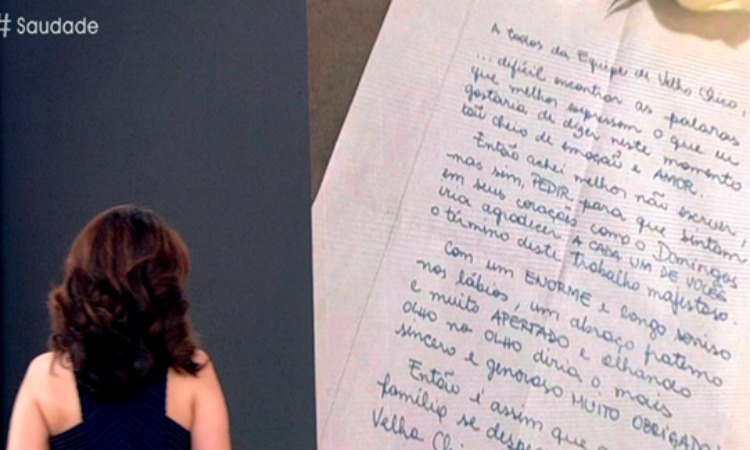 # Saudade
A todos da Equipe de Velho Chico,
... difícil encontrar as palavras
que melhor expressem o que eu
gostaria de dizer neste momento
tão cheio de emoção e AMOR.
Então achei melhor não escrever,
mas sim, PEDIR para que sintam
em seus corações como o Domingos
iria agradecer A CADA UM DE VOCÊS
o término deste trabalho majestoso.
Com um ENORME e longo sorriso
nos lábios, um abraço fraterno
e muito APERTADO e olhando
OLHO no OLHO diria o mais
sincero e generoso MUITO OBRIGADO!
Então é assim que a
família se
Velho